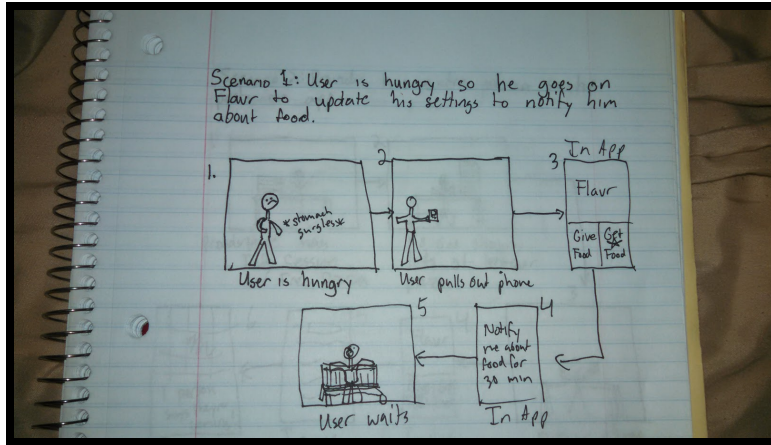 Scenario 1: User is hungry so he goes on
Flavr to update his settings to notify him
about food.
1.
*stomach
gurgles*
User is hungry
2
User pulls out phone
3
In App
Flavr
Give
Food
Get
Food
4
Notify
me about
food for
30 min
In App
5
User waits